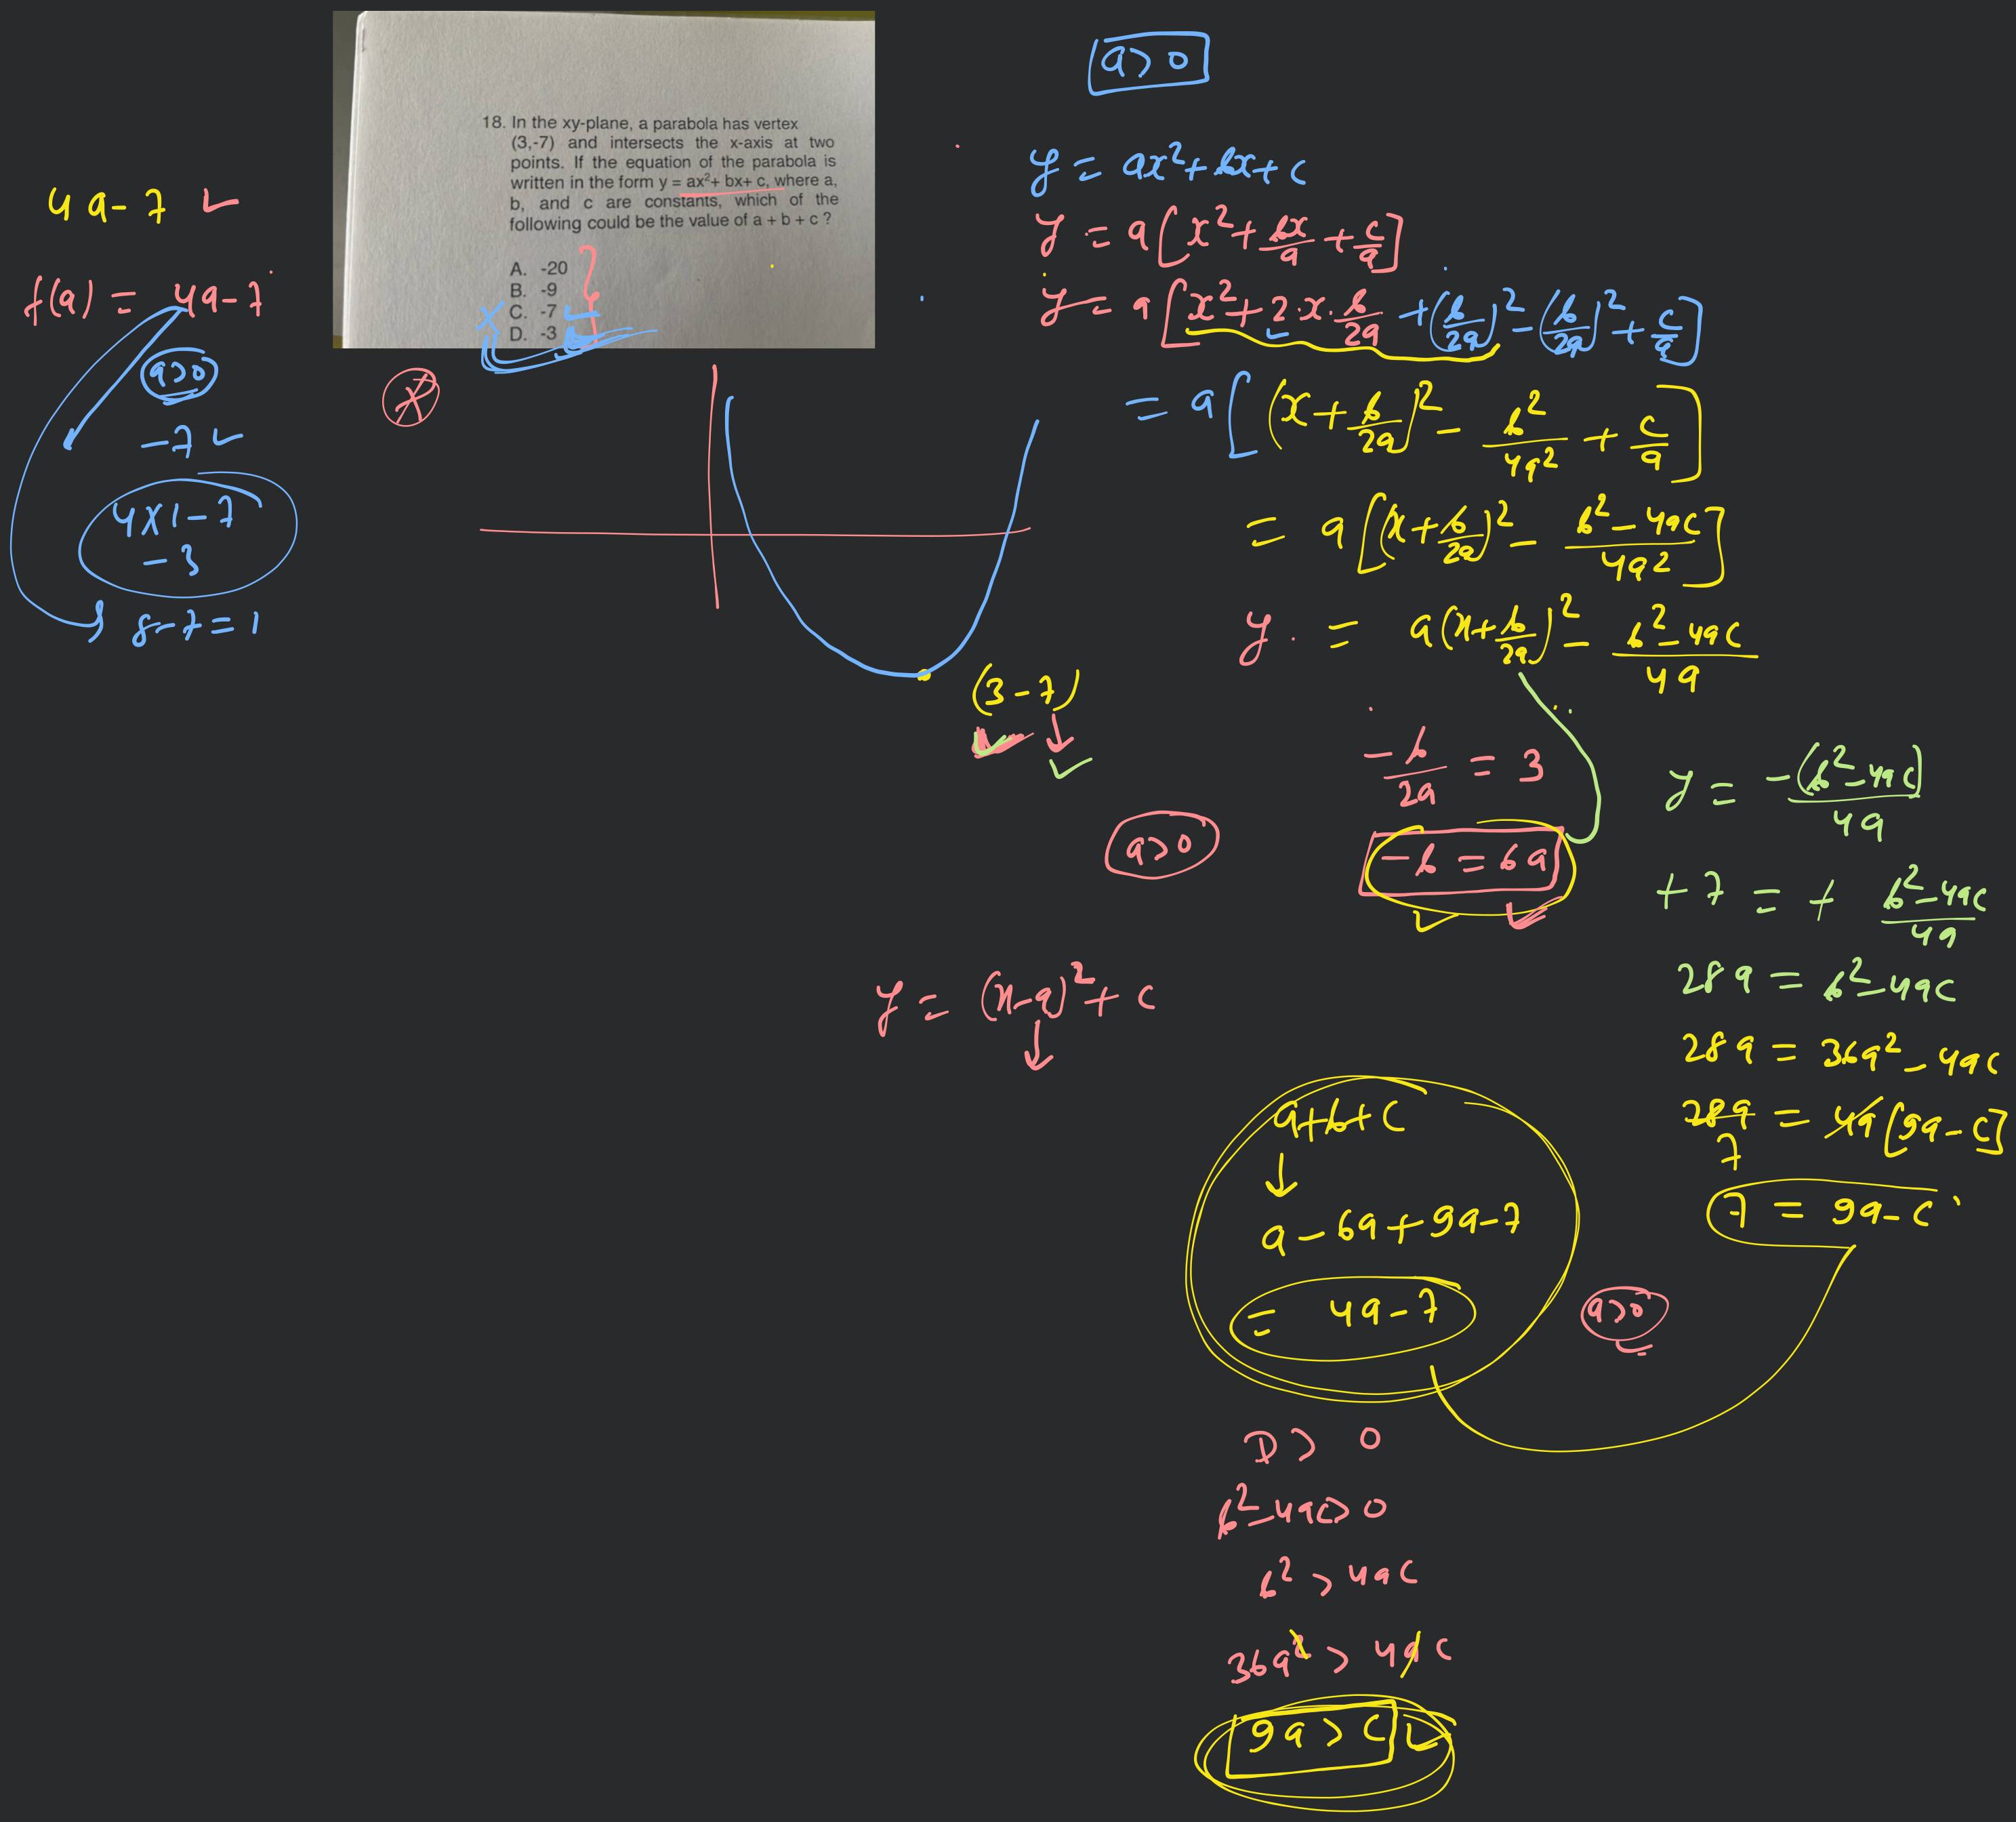 a > 0
18. In the xy-plane, a parabola has vertex
(3,-7) and intersects the x-axis at two
points. If the equation of the parabola is
written in the form y = ax²+ bx+ c, where a,
b, and c are constants, which of the
following could be the value of a + b + c ?
A. -20
B. -9
C. -7
D. -3
4a-7
f(a) = 4a-7
a>0
-7
4×1-7
-3
8-7=1
(3-7)
y = ax²+bx+c
y = a[x²+bx/a+c/a]
y = a[x²+2·x·b/2a+(b/2a)²-(b/2a)²+c/a]
= a[(x+b/2a)²-b²/4a²+c/a]
= a[(x+b/2a)²-b²-4ac/4a²]
y = a(x+b/2a)²-b²-4ac/4a
-b/2a = 3
-b = 6a
a>0
y = (x-a)²+c
y = -(b²-4ac)/4a
+7 = + b²-4ac/4a
28a = b²-4ac
28a = 36a²-4ac
28a = 4a[9a-c]
7
7 = 9a-c
a+b+c
a-6a+9a-7
= 4a-7
a>0
D > 0
b²-4ac>0
b² > 4ac
36a² > 4ac
9a > c